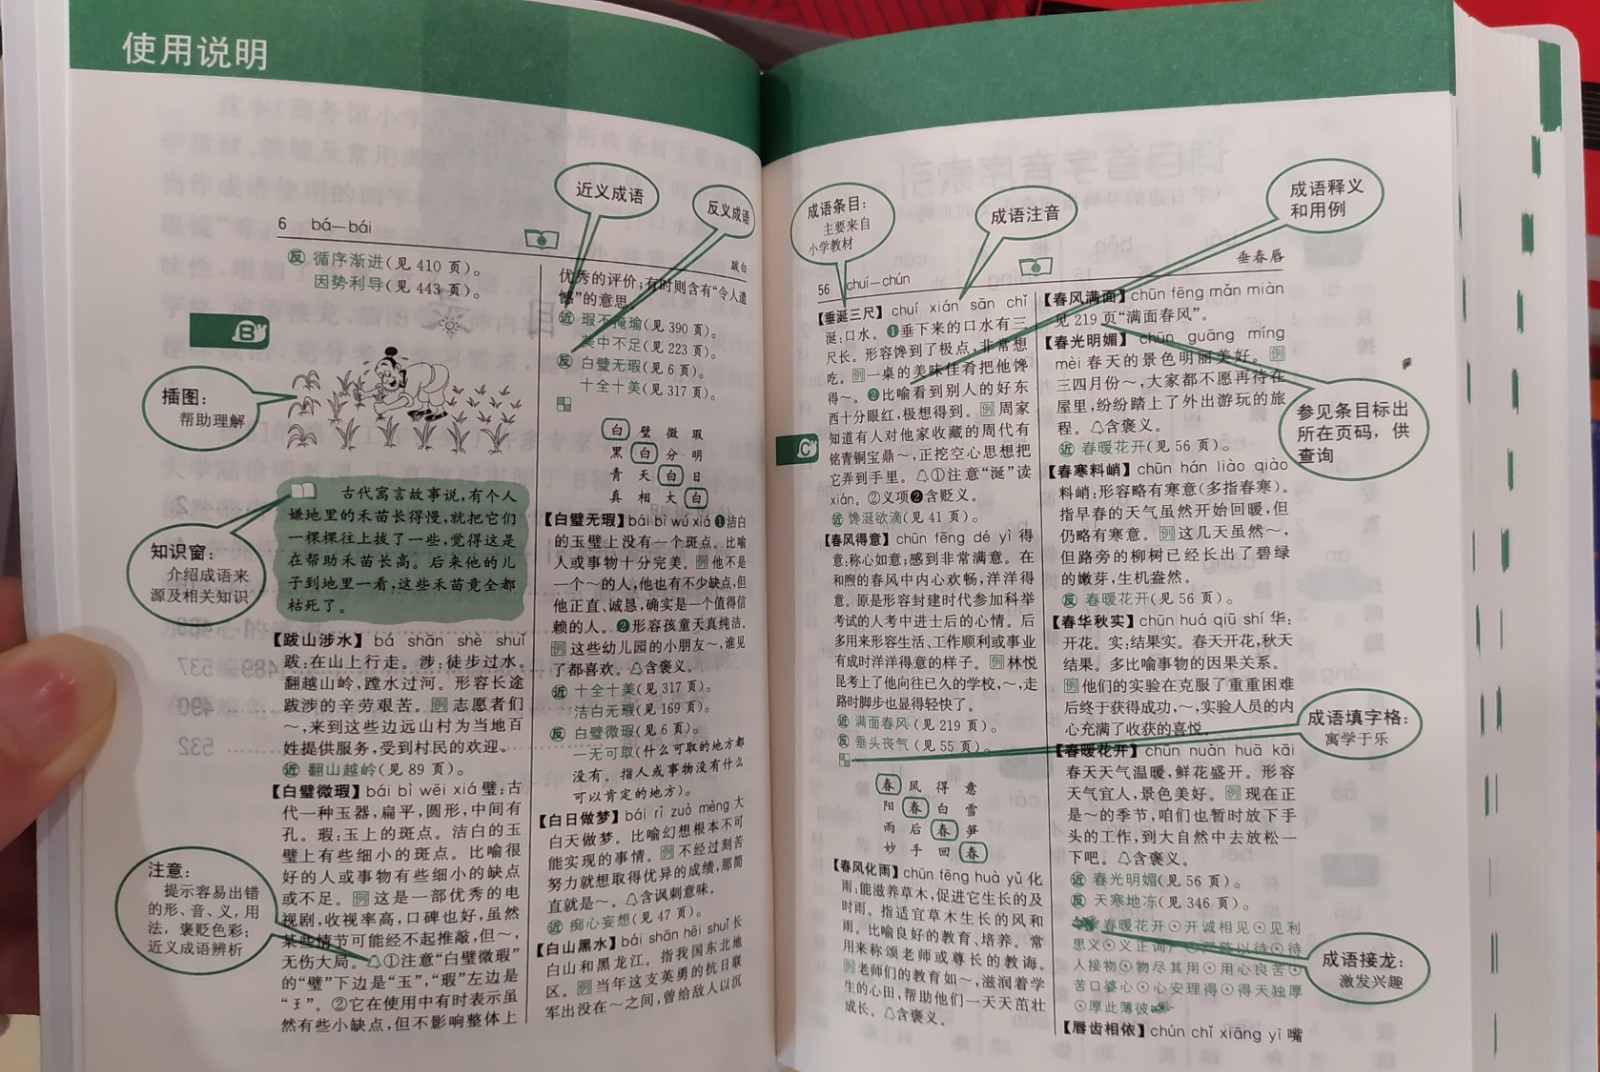 使用说明
近义成语
反义成语
6 bá—bái
跋白
反 循序渐进(见 410 页)。
因势利导(见 443 页)。
B
插图：
帮助理解
古代寓言故事说，有个人
嫌地里的禾苗长得慢，就把它们
一棵棵往上拔了一些，觉得这是
在帮助禾苗长高。后来他的儿
子到地里一看，这些禾苗竟全都
枯死了。
知识窗：
介绍成语来
源及相关知识
【跋山涉水】bá shān shè shuǐ
跋：在山上行走。涉：徒步过水。
翻越山岭，蹚水过河。形容长途
跋涉的辛劳艰苦。例 志愿者们
～，来到这些边远山村为当地百
姓提供服务，受到村民的欢迎。
近 翻山越岭(见 89 页)。
【白璧微瑕】bái bì wēi xiá 璧：古
代一种玉器，扁平，圆形，中间有
孔。瑕：玉上的斑点。洁白的玉
璧上有些细小的斑点。比喻很
好的人或事物有些细小的缺点
或不足。例 这是一部优秀的电
视剧，收视率高，口碑也好，虽然
某些情节可能经不起推敲，但～，
无伤大局。①注意“白璧微瑕”
的“璧”下边是“玉”，“瑕”左边是
“王”。②它在使用中有时表示虽
然有些小缺点，但不影响整体上
注意：
提示容易出错
的形、音、义，用
法，褒贬色彩；
近义成语辨析
优秀的评价；有时则含有“令人遗
憾”的意思。
近 瑕不掩瑜(见 390 页)。
美中不足(见 223 页)。
反 白璧无瑕(见 6 页)。
十全十美(见 317 页)。
白 璧 微 瑕
黑 白 分 明
青 天 白 日
真 相 大 白
【白璧无瑕】bái bì wú xiá ❶洁白
的玉璧上没有一个斑点。比喻
人或事物十分完美。例 他不是
一个～的人，他也有不少缺点，但
他正直、诚恳，确实是一个值得信
赖的人。❷形容孩童天真纯洁。
例 这些幼儿园的小朋友～，谁见
了都喜欢。含褒义。
近 十全十美(见 317 页)。
洁白无瑕(见 169 页)。
反 白璧微瑕(见 6 页)。
一无可取(什么可取的地方都
没有。指人或事物没有什么
可以肯定的地方)。
【白日做梦】bái rì zuò mèng 大
白天做梦。比喻幻想根本不可
能实现的事情。例 不经过刻苦
努力就想取得优异的成绩，那简
直就是～。含讽刺意味。
近 痴心妄想(见 47 页)。
【白山黑水】bái shān hēi shuǐ 长
白山和黑龙江。指我国东北地
区。例 当年这支英勇的抗日联
军出没在～之间，曾给敌人以沉
成语条目：
主要来自
小学教材
成语注音
成语释义
和用例
56 chuí—chún
垂春唇
C
【垂涎三尺】chuí xián sān chǐ
涎：口水。❶垂下来的口水有三
尺长。形容馋到了极点，非常想
吃。例 一桌的美味佳肴把他馋
得～。❷比喻看到别人的好东
西十分眼红，极想得到。例 周家
知道有人对他家收藏的周代有
铭青铜宝鼎～，正挖空心思想把
它弄到手里。①注意“涎”读
xián。②义项❷含贬义。
近 馋涎欲滴(见 41 页)。
【春风得意】chūn fēng dé yì 得
意：称心如意；感到非常满意。在
和煦的春风中内心欢畅，洋洋得
意。原是形容封建时代参加科举
考试的人考中进士后的心情。后
多用来形容生活、工作顺利或事业
有成时洋洋得意的样子。例 林悦
昆考上了他向往已久的学校，～，走
路时脚步也显得轻快了。
近 满面春风(见 219 页)。
反 垂头丧气(见 55 页)。
春 风 得 意
阳 春 白 雪
雨 后 春 笋
妙 手 回 春
【春风化雨】chūn fēng huà yǔ 化
雨：能滋养草木，促进它生长的及
时雨。指适宜草木生长的风和
雨。比喻良好的教育、培养。常
用来称颂老师或尊长的教诲。
例 老师们的教育如～，滋润着学
生的心田，帮助他们一天天茁壮
成长。含褒义。
【春风满面】chūn fēng mǎn miàn
见 219 页“满面春风”。
【春光明媚】chūn guāng míng
mèi 春天的景色明丽美好。例
三四月份～，大家都不愿再待在
屋里，纷纷踏上了外出游玩的旅
程。含褒义。
近 春暖花开(见 56 页)。
【春寒料峭】chūn hán liào qiào
料峭：形容略有寒意(多指春寒)。
指早春的天气虽然开始回暖，但
仍略有寒意。例 这几天虽然～，
但路旁的柳树已经长出了碧绿
的嫩芽，生机盎然。
反 春暖花开(见 56 页)。
【春华秋实】chūn huá qiū shí 华：
开花。实：结果实。春天开花，秋天
结果。多比喻事物的因果关系。
例 他们的实验在克服了重重困难
后终于获得成功，～，实验人员的内
心充满了收获的喜悦。
【春暖花开】chūn nuǎn huā kāi
春天天气温暖，鲜花盛开。形容
天气宜人，景色美好。例 现在正
是～的季节，咱们也暂时放下手
头的工作，到大自然中去放松一
下吧。含褒义。
近 春光明媚(见 56 页)。
反 天寒地冻(见 346 页)。
春暖花开⊙开诚相见⊙见利
思义⊙义正词严⊙以待⊙待
人接物⊙物尽其用⊙用心良苦⊙
苦口婆心⊙心安理得⊙得天独厚
⊙厚此薄彼
【唇齿相依】chún chǐ xiāng yī 嘴
参见条目标出
所在页码，供
查询
成语填字格：
寓学于乐
成语接龙：
激发兴趣